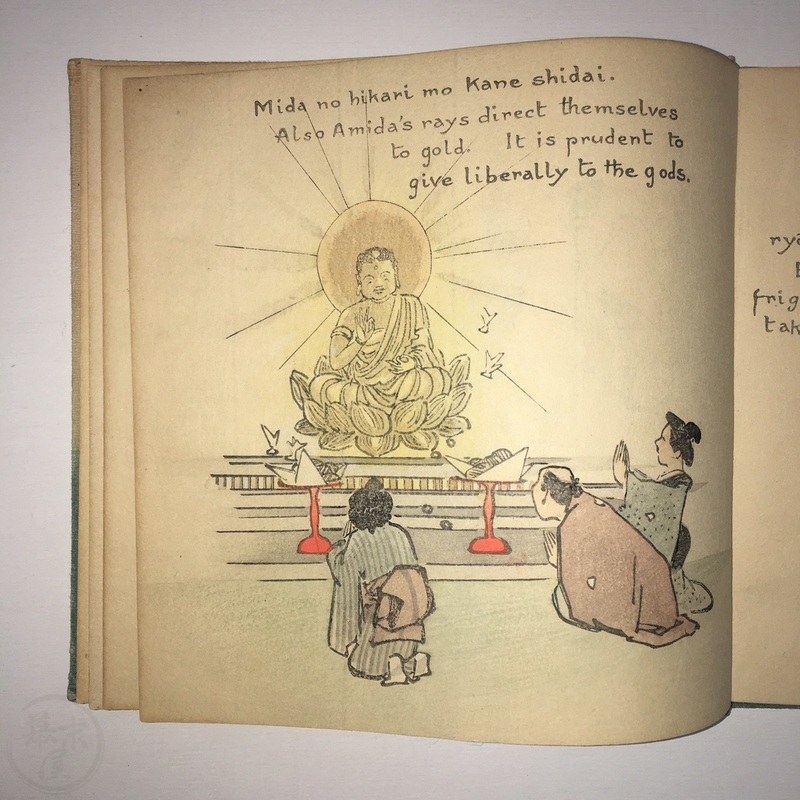 Mida no hikari mo Kane shidai.
Also Amida's rays direct themselves
to gold. It is prudent to
give liberally to the gods.
frig
tak